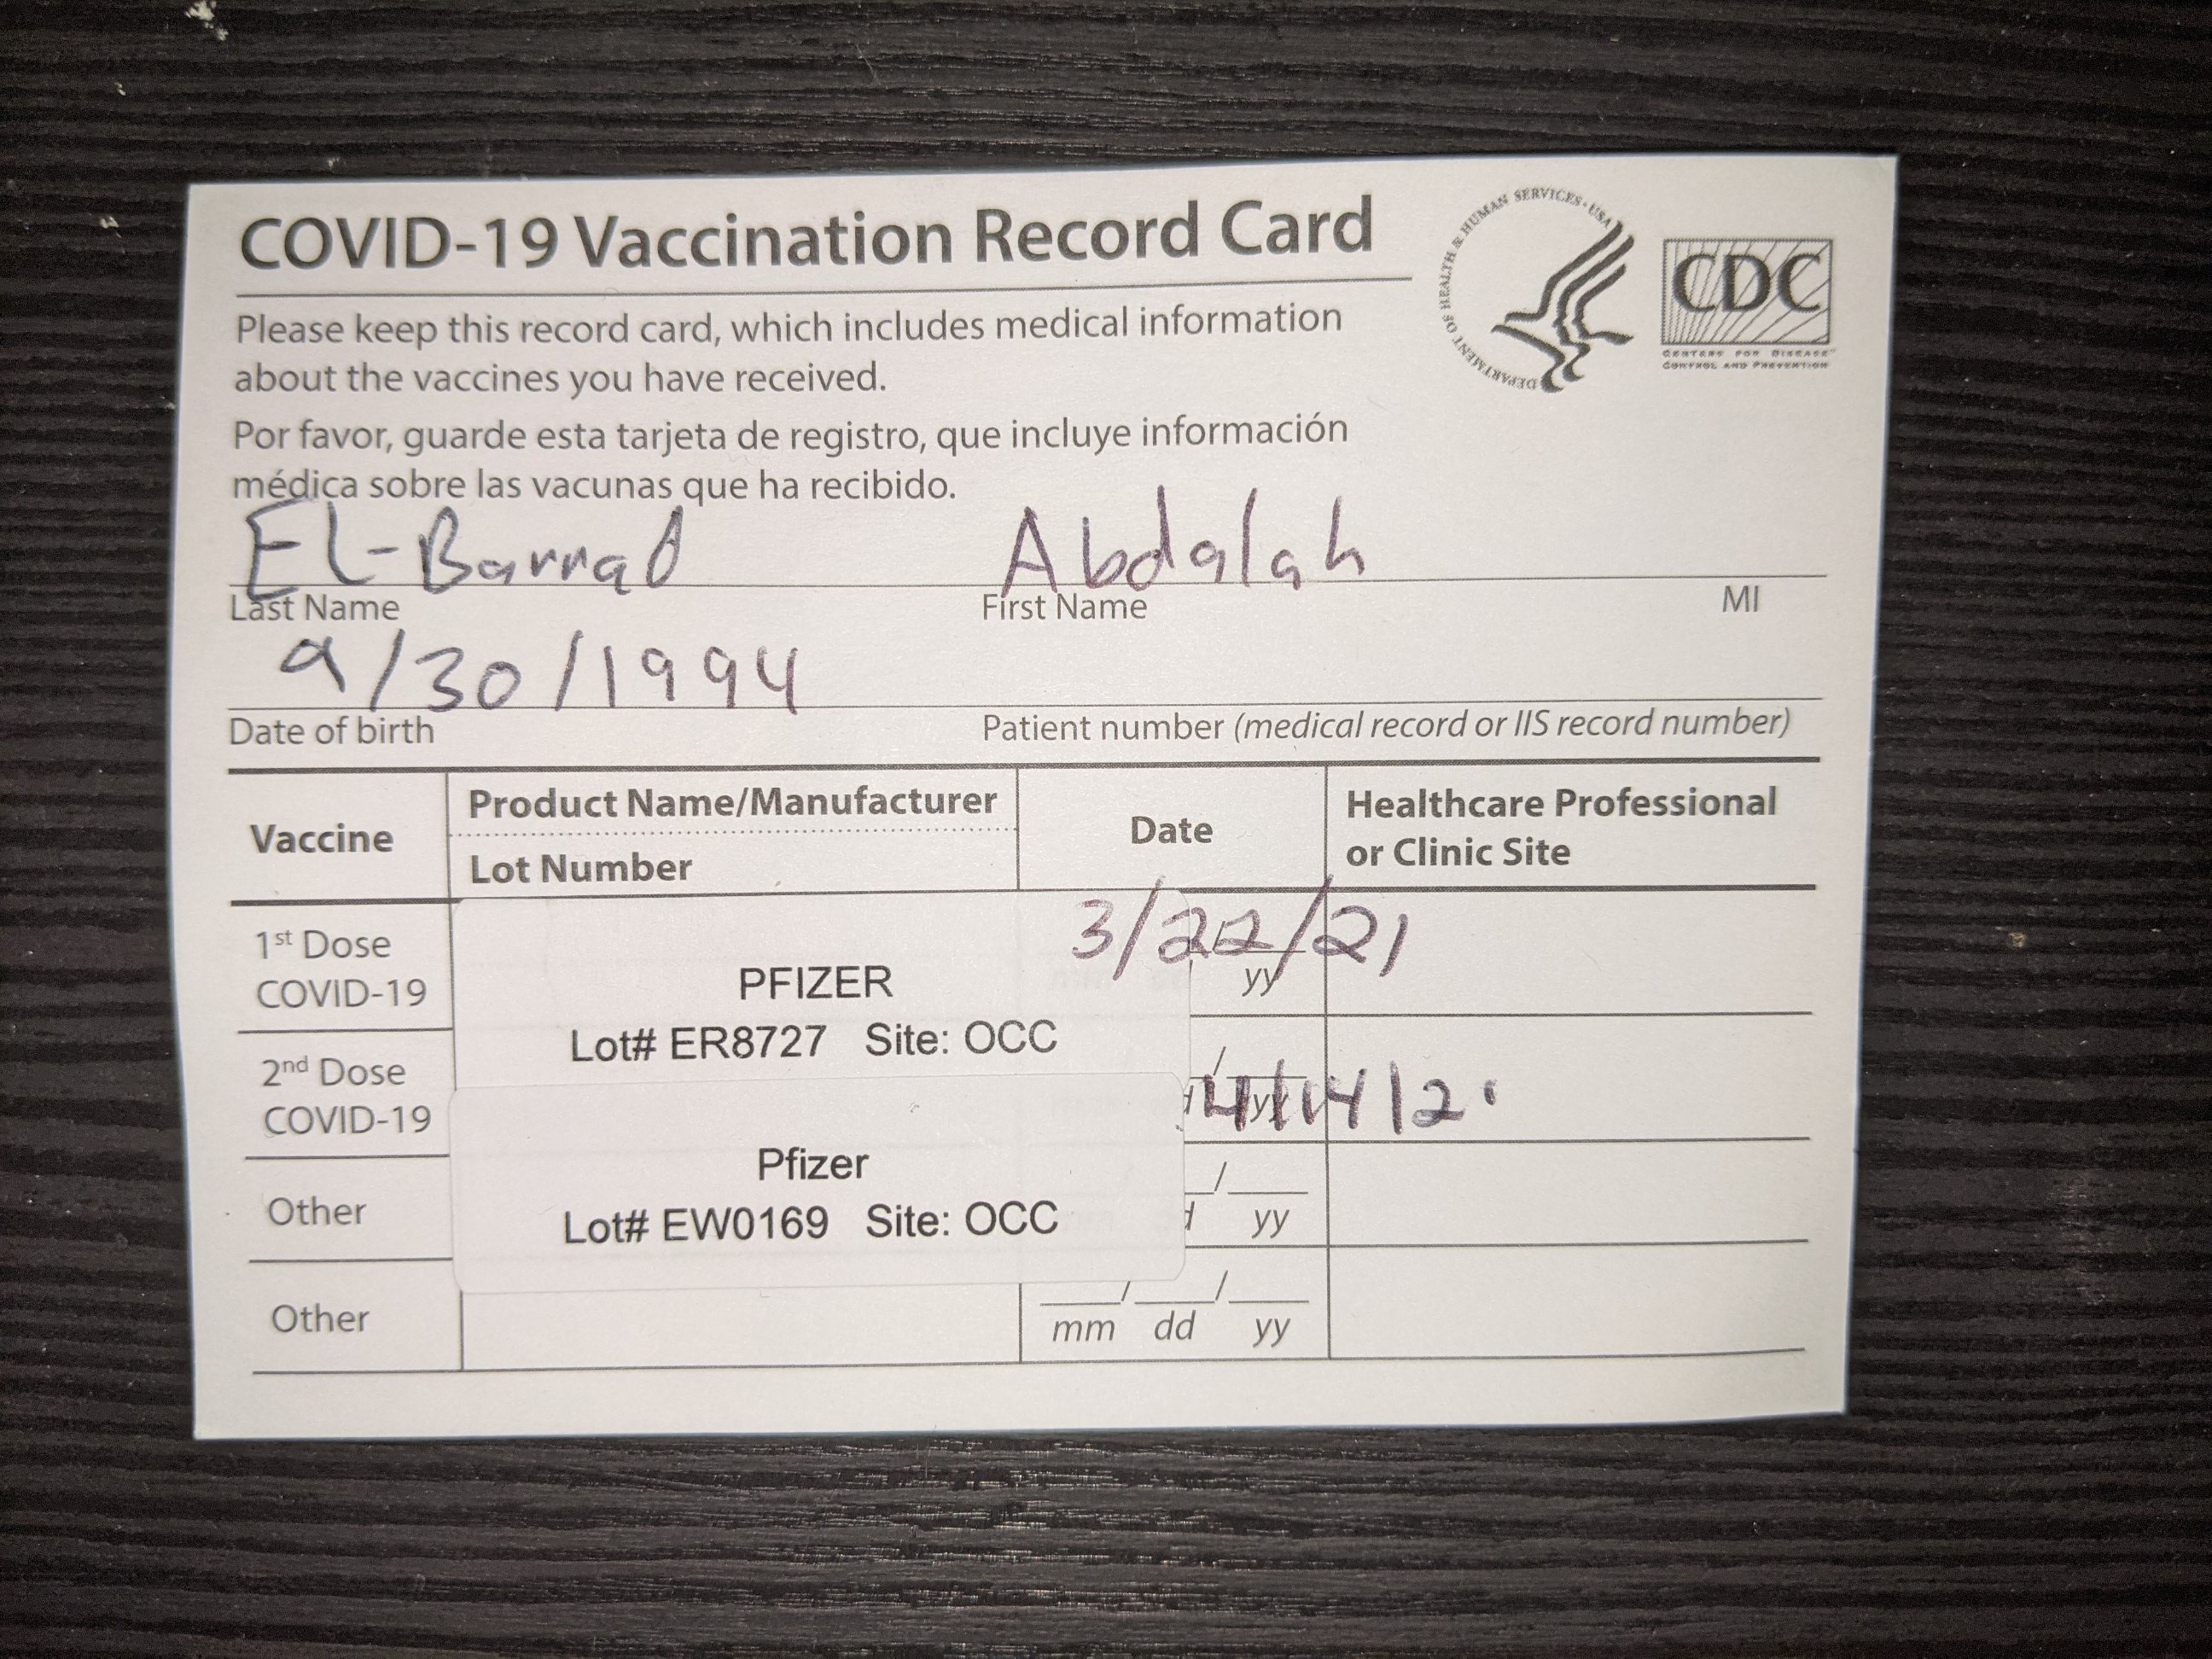 COVID-19 Vaccination Record Card
DEPARTMENT OF HEALTH & HUMAN SERVICES · USA
CDC
CENTERS FOR DISEASE™
CONTROL AND PREVENTION
Please keep this record card, which includes medical information
about the vaccines you have received.
Por favor, guarde esta tarjeta de registro, que incluye información
médica sobre las vacunas que ha recibido.
El-Barrad Abdalah
Last Name First Name MI
9/30/1994
Date of birth Patient number (medical record or IIS record number)
Vaccine Product Name/Manufacturer Date Healthcare Professional
Lot Number or Clinic Site
1st Dose 3/22/21
COVID-19 PFIZER yy
Lot# ER8727 Site: OCC
2nd Dose /
COVID-19 4/14/21
Pfizer
Other Lot# EW0169 Site: OCC / yy
Other / /
mm dd yy